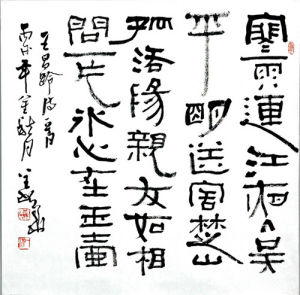 寒雨連江夜入吳
平明送客楚山
孤洛陽親友如相
問一片冰心在玉壺
王昌齡詩一首
年 秋月